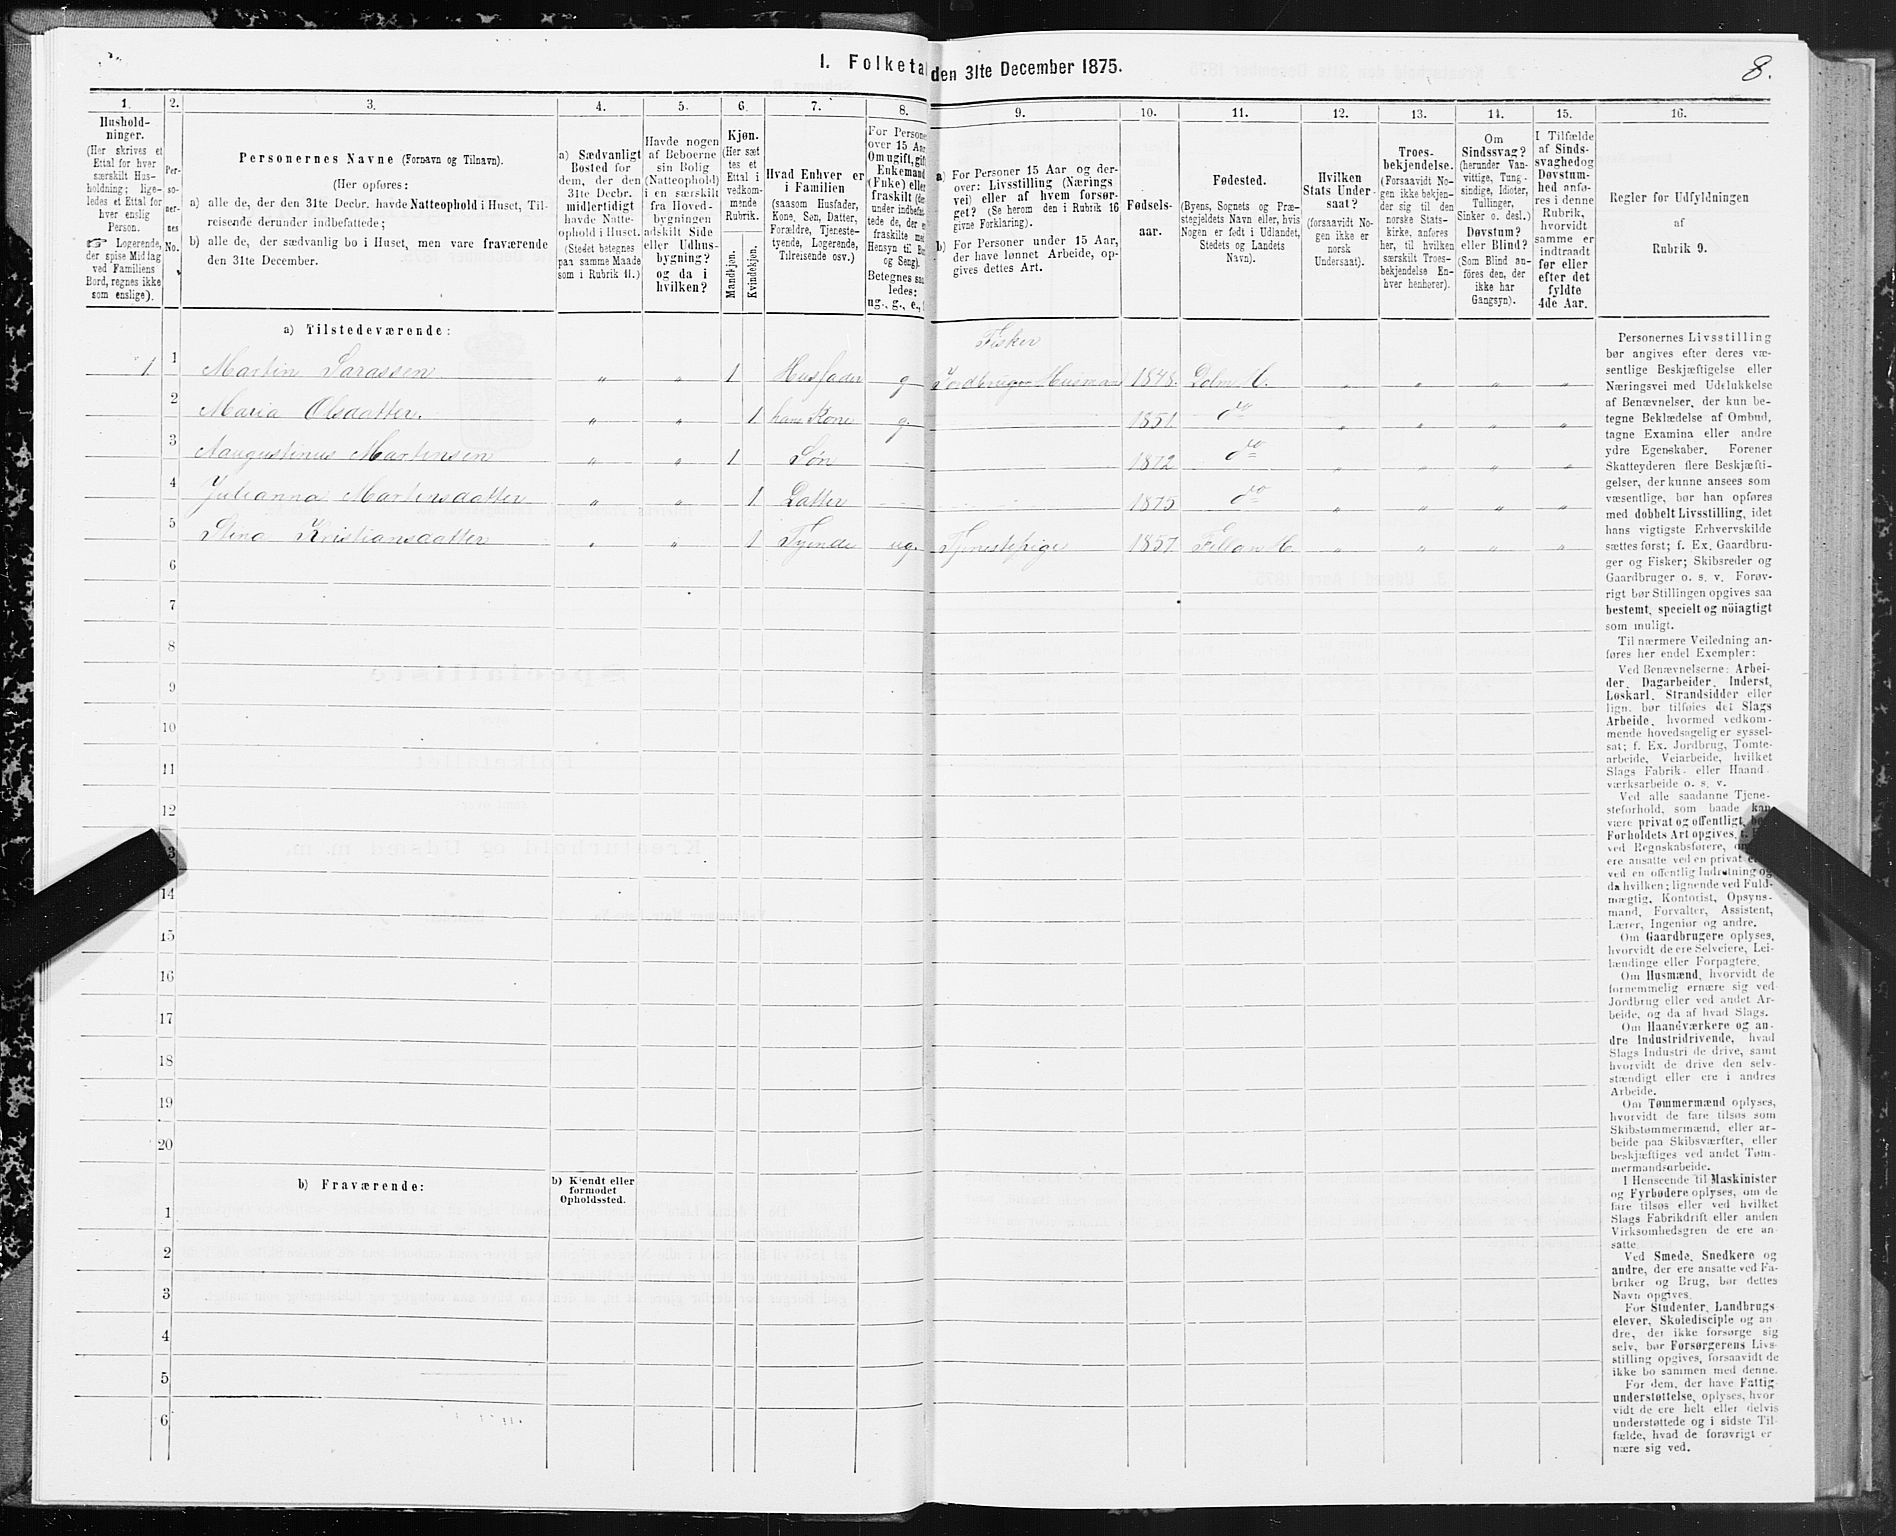 1. Folketal den 31te December 1875.
8.
1. 2. 3. 4. 5. 6. 7. 8. 9. 10. 11. 12. 13. 14. 15. 16.
Hushold-
ninger.
(Her skrives et
Ettal for hver
særskilt Hus-
holdning; lige-
ledes et Ettal for
hver enslig
Person.
☞ Logerende,
der spise Middag
ved Familiens
Bord, regnes ikke
som enslige).
Per-
so-
ner-
nes
No.
Personernes Navne (Fornavn og Tilnavn).
(Her opføres:
a) alle de, der den 31te Decbr. havde Natteophold i Huset, Til-
reisende derunder indbefattede;
b) alle de, der sædvanlig bo i Huset, men vare fraværende
den 31te December.
a) Sædvanligt
Bosted for
dem, der den
31te Decbr.
midlertidigt
havde Natte-
ophold i Huset.
(Stedet betegnes
paa samme Maade
som i Rubrik 11.)
Havde nogen
af Beboerne
sin Bolig
(Natteophold)
i en særskilt
fra Hoved-
bygningen
adskilt Side
eller Udhus-
bygning?
og da i
hvilken?
Kjøn.
(Her sæt
tes et
Ettal i
vedkom-
mende
Rubrik.
Mandkjøn.
Kvindekjøn.
Hvad Enhver er
i Familien
(saasom Husfader,
Kone, Søn, Datter,
Forældre, Tjeneste-
tyende, Logerende,
Tilreisende osv.)
For Persone
over 15 Aar
Om ugift, gift
Enkemand
(Enke) eller
fraskilt (de
under indbefat
tede de, der e
fraskilte med
Hensyn til Bo
og Seng).
Betegnes saa
ledes:
ug., g., e.,
a) For Personer 15 Aar og der-
over: Livsstilling (Nærings
vei) eller af hvem forsør-
get? (Se herom den i Rubrik 16
givne Forklaring).
b) For Personer under 15 Aar,
der have lønnet Arbeide, op-
gives dettes Art.
Fødsels-
aar.
Fødested.
(Byens, Sognets og Præ-
stegjeldets Navn eller, hvis
Nogen er født i Udlandet,
Stedets og Landets
Navn).
Hvilken
Stats Under-
saat?
(forsaavidt No-
gen ikke er
norsk
Undersaat).
Troes-
bekjendelse.
(Forsaavidt No-
gen ikke bekjen-
der sig til den
norske Stats-
kirke, anføres
her, til hvilken
særskilt Troes-
bekjendelse En-
hver henhører).
Om
Sindssvag?
(herunder Van-
vittige, Tung-
sindige, Idioter,
Tullinger,
Sinker o. desl.)
Døvstum?
eller Blind?
(Som Blind an-
føres den, der
ikke har
Gangsyn).
I Tilfælde
af Sinds-
svaghed og
Døvstum-
hed anfø-
res i denne
Rubrik,
hvorvidt
samme er
indtraadt
før eller
efter det
fyldte
4de Aar.
Regler for Udfyldningen
af
Rubrik 9.
a) Tilstedeværende:
Fisker
1. 1 Martin Larassen " " 1 Husfader g Jordbruger Husmand 1848. Dolm H. " " " "
2 Maria Olsdatter. " " 1 hans Kone g 1851. do " " " "
3 Aaugustinus Martinsen " " 1 Søn 1872 do " " " "
4 Julianna Martinsdatter " " 1 Datter 1875 do " " " "
5 Stina Kristiansdatter " " 1 Tyende ug. Tjenestepige 1857 Fillan H. " " " "
6
7
8
9
10
11
12
13
14
15
16
17
18
19
20
b) Fraværende:
b) Kjendt eller
formodet
Opholdssted.
1
2
3
4
5
6
Personernes Livsstilling
bør angives efter deres væ-
sentlige Beskjæftigelse eller
Næringsvei med Udelukkelse
af Benævnelser, der kun be-
tegne Beklædelse af Ombud,
tagne Examina eller andre
ydre Egenskaber. Forener
Skatteyderen flere Beskjæfti-
gelser, der kunne ansees som
væsentlige, bør han opføres
med dobbelt Livsstilling, idet
hans vigtigste Erhvervskilde
sættes først; f. Ex. Gaardbru-
ger og Fisker; Skibsreder og
Gaardbruger o. s. v. Forøv-
rigt bør Stillingen opgives saa
bestemt, specielt og nöiagtigt
som muligt.
Til nærmere Veiledning an-
føres her endel Exempler:
Ved Benævnelserne: Arbei-
der, Dagarbeider, Inderst,
Løskarl, Strandsidder eller
lign. bør tilføies det Slags
Arbeide, hvormed vedkom-
mende hovedsagelig er syssel-
sat; f. Ex. Jordbrug, Tomte-
arbeide, Veiarbeide, hvilket
Slags Fabrik- eller Haand-
værksarbeide o. s. v.
Ved alle saadanne Tjene-
steforhold, som baade kan
være privat og offentligt, bør
Forholdets Art opgives,
ved Regnskabsførere,
ere ansatte ved en privat
ved en offentlig Indretning og
da hvilken; lignende ved Fuld-
mægtig, Kontorist, Opsyns-
mand, Forvalter, Assistent,
Lærer, Ingeniør og andre.
Om Gaardbrugere oplyses,
hvorvidt de ere Selveiere, Lei-
lændinge eller Forpagtere.
Om Husmænd, hvorvidt de
fornemmelig ernære sig ved
Jordbrug eller ved andet Ar-
beide, og da af hvad Slags.
Om Haandværkere og an-
dre Industridrivende, hvad
Slags Industri de drive, samt
hvorvidt de drive den selv-
stændigt eller ere i andres
Arbeide.
Om Tømmermænd oplyses,
hvorvidt de fare tilsøs som
Skibstømmermænd, eller ar-
beide paa Skibsværfter, eller
beskjæftiges ved andet Tøm-
mermandsarbeide.
I Henseende til Maskinister
og Fyrbødere oplyses, om de
fare tilsøs eller ved hvilket
Slags Fabrikdrift eller anden
Virksomhedsgren de ere an-
satte.
Ved Smede, Snedkere og
andre, der ere ansatte ved Fa-
briker og Brug, bør dettes
Navn opgives.
For Studenter, Landbrugs-
elever, Skoledisciple og an-
dre, der ikke forsørge sig
selv, bør Forsørgerens Livs-
stilling opgives, forsaavidt de
ikke bo sammen med denne.
For dem, der have Fattig-
understøttelse, oplyses, hvor-
vidt de ere helt eller delvis
understøttede og i sidste Til-
fælde, hvad de forøvrigt er
nære sig ved.